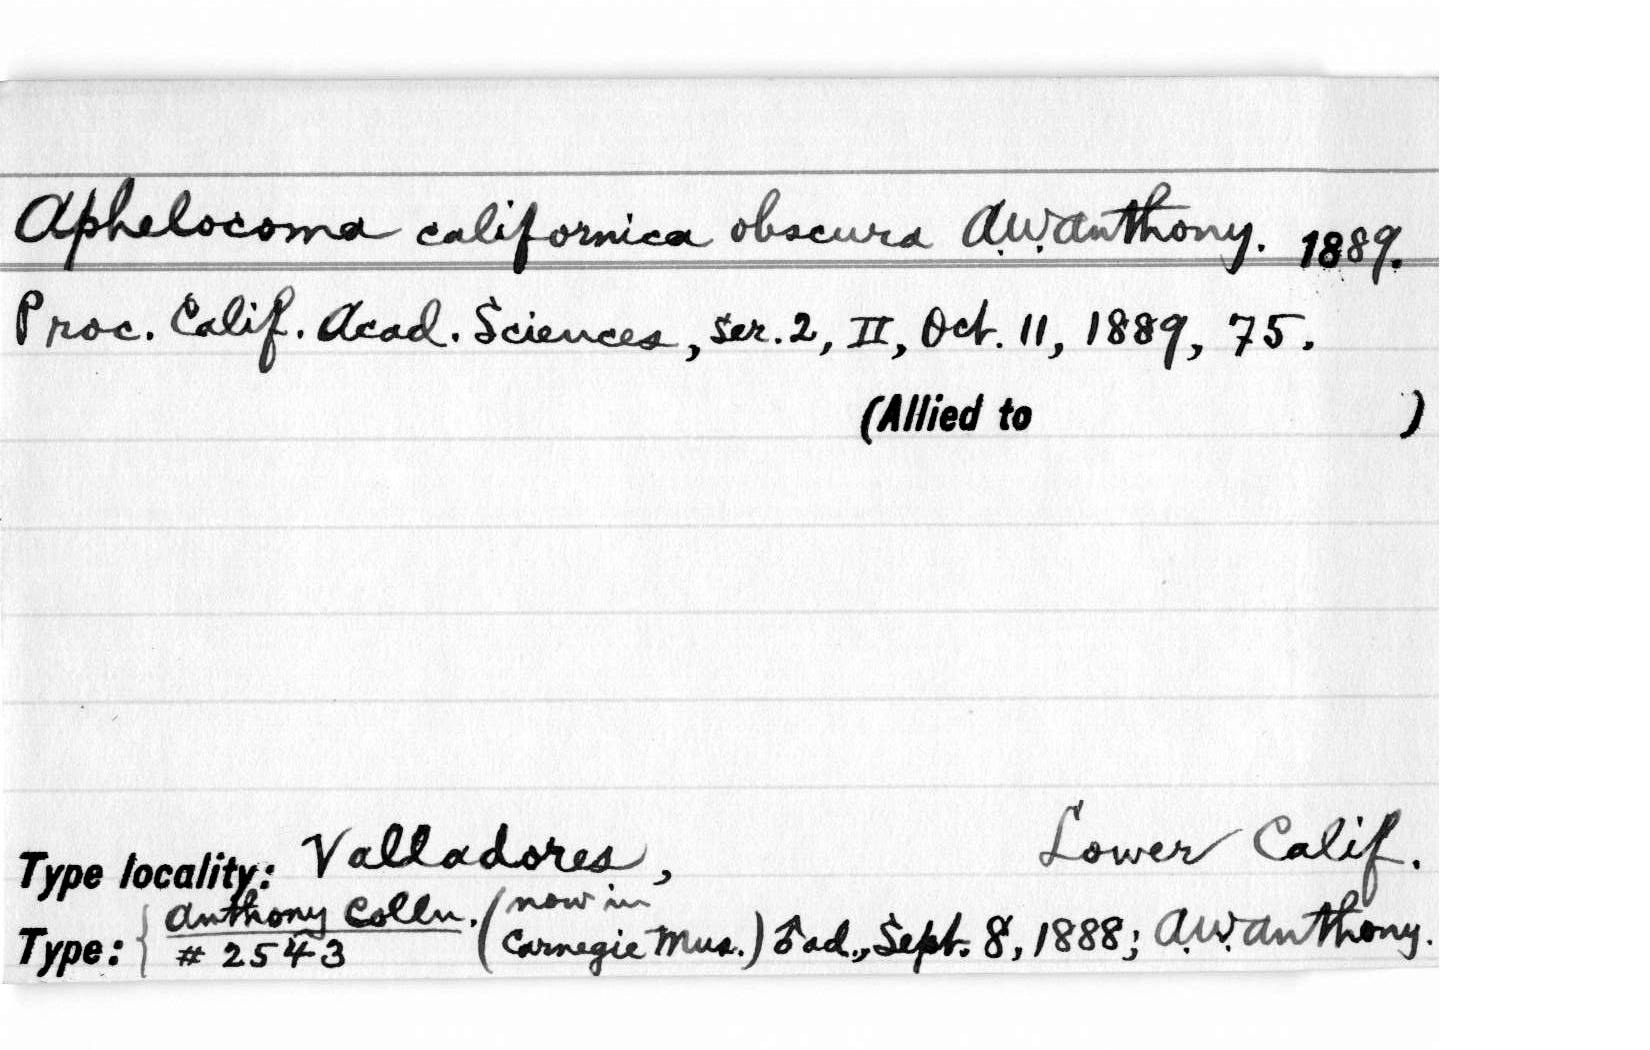 Aphelocoma californica obscura A.W. Anthony. 1889.
Proc. Calif. Acad. Sciences, ser. 2, II, Oct. 11, 1889, 75.
(Allied to )
Type locality: Valladores, Lower Calif.
Type: { Anthony Colln. # 2543 (now in Carnegie Mus.) ♂ ad., Sept. 8, 1888; A.W. Anthony.